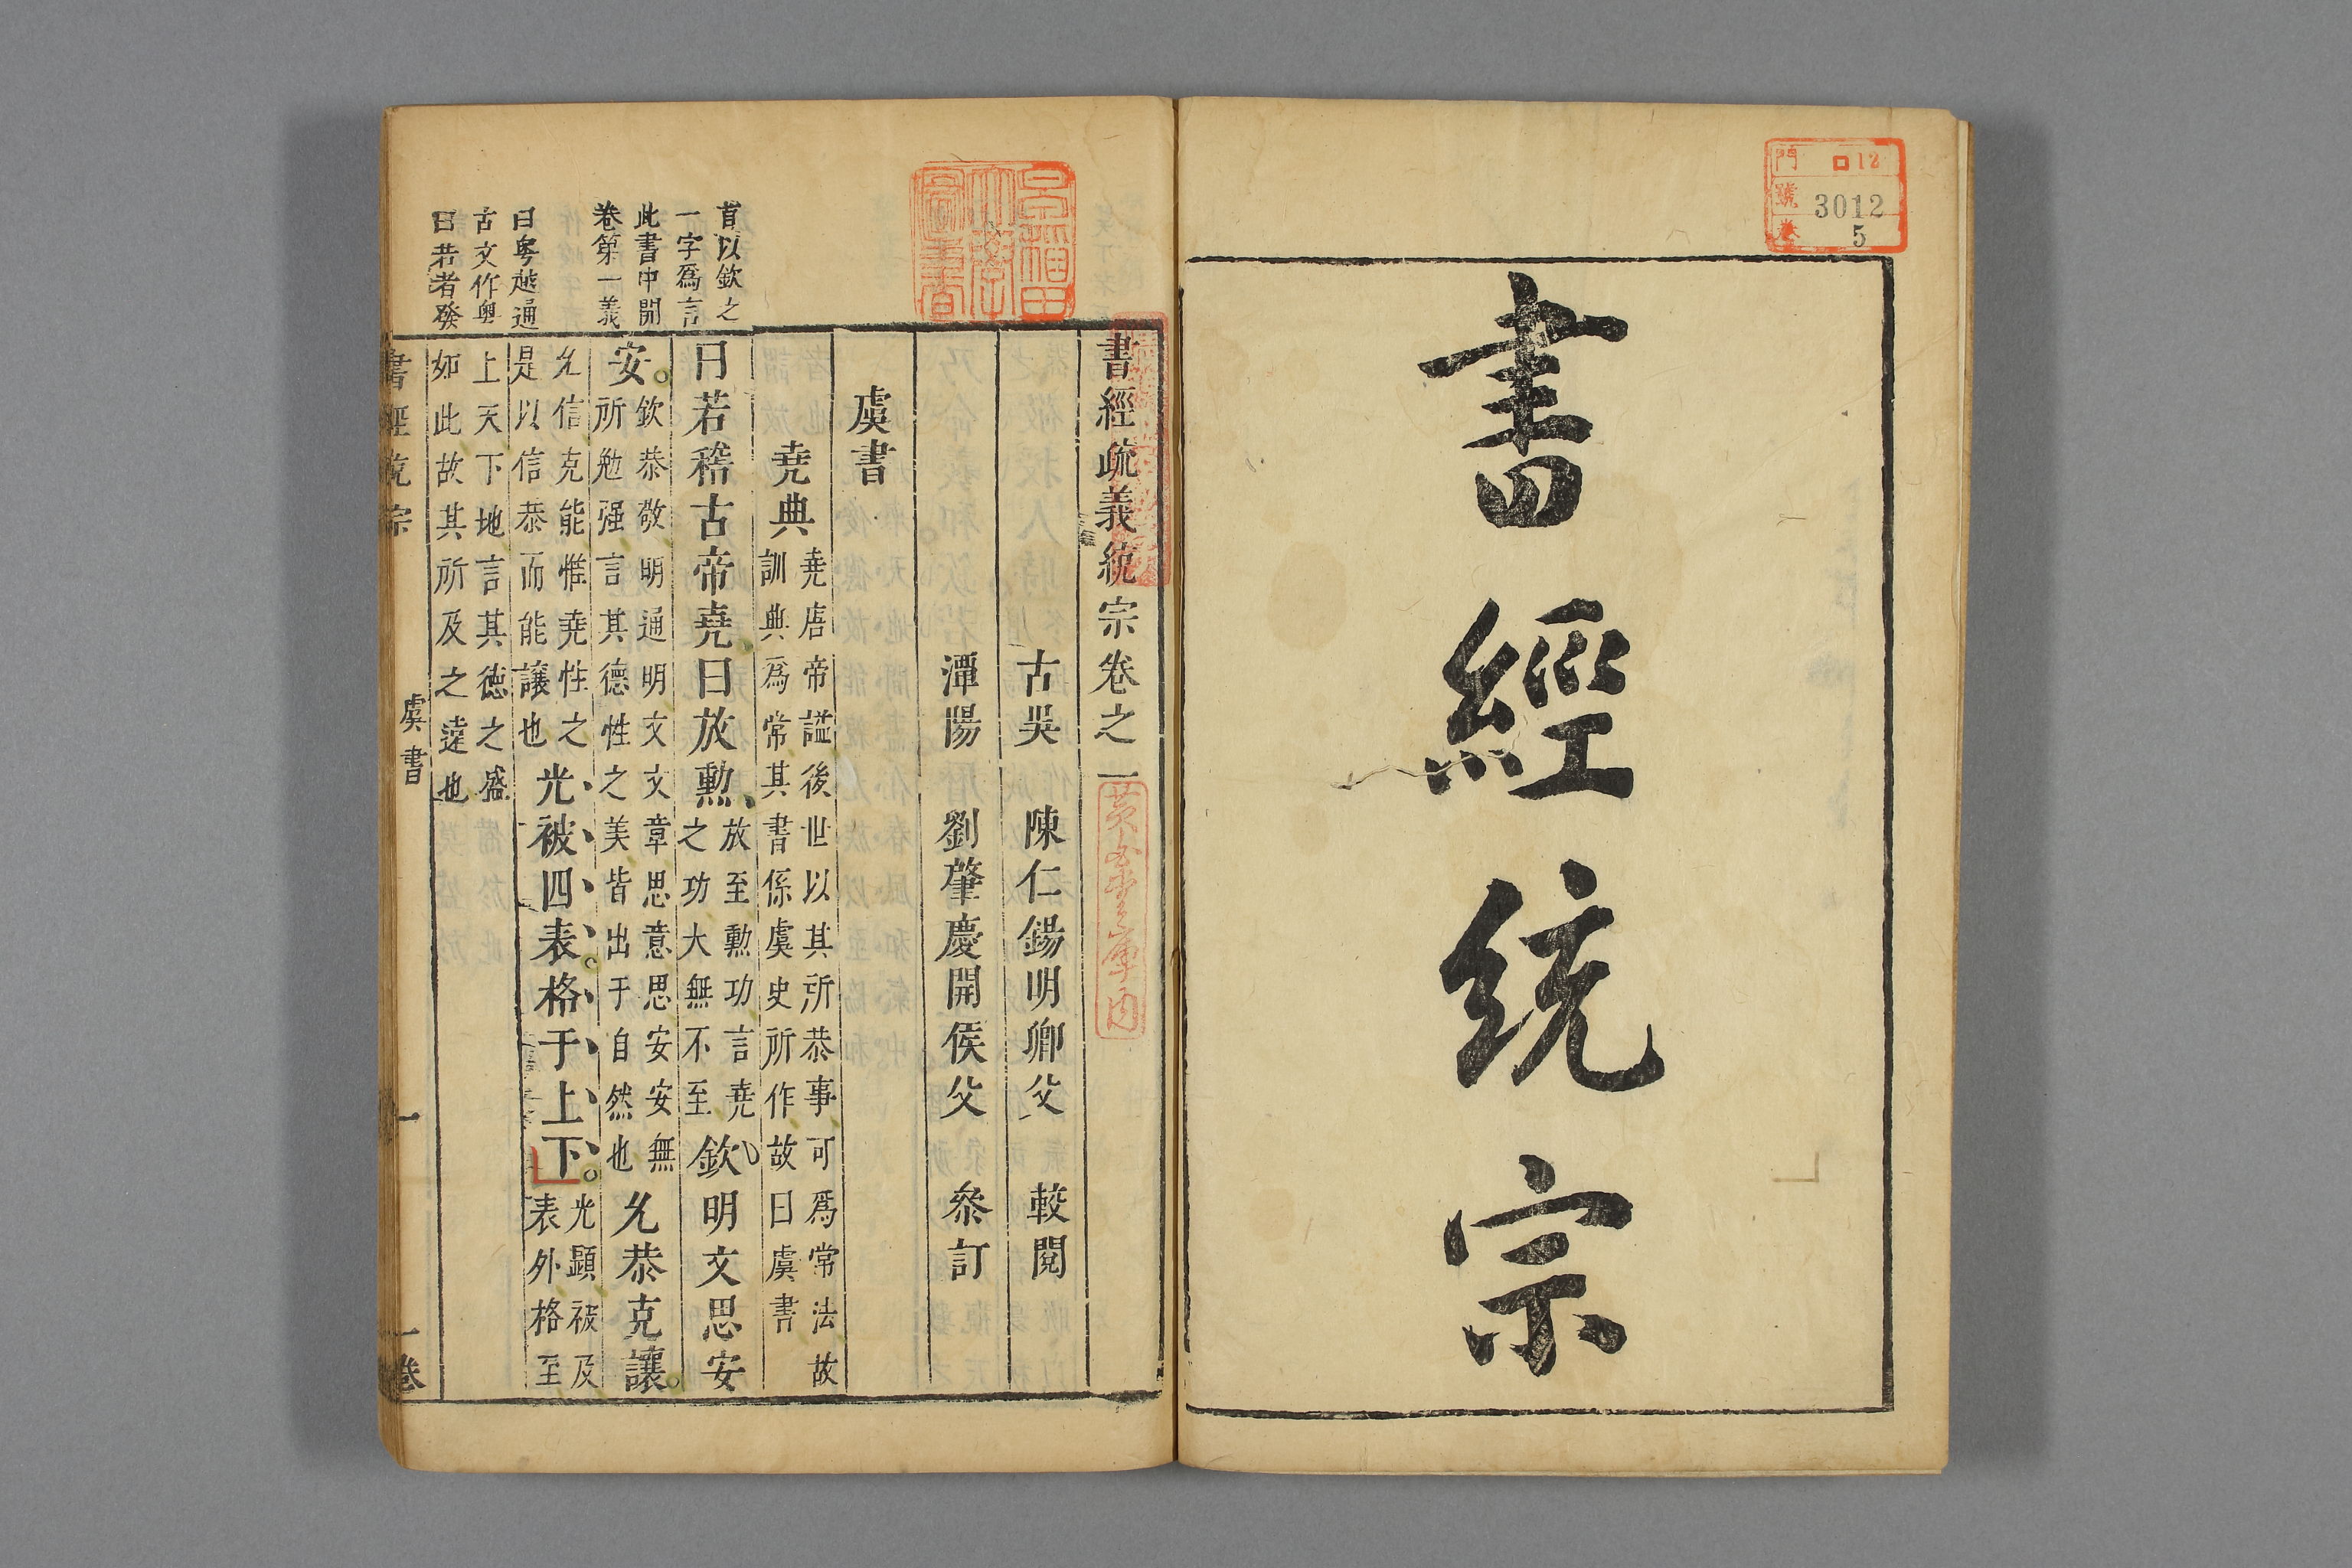 書經統宗
門 ロ12
號 3012
卷 5
書經疏義統宗卷之一
古吳 陳仁錫明卿父 較閱
潭陽 劉肇慶開侯父 叅訂
虞書
堯典 堯唐帝謚後世以其所恭事可爲常法故
訓典爲常其書係虞史所作故曰虞書
曰若稽古帝堯曰放勲 放至勲功言堯
之功大無不至 欽明文思安
安 欽恭敬明通明文文章思意思安安無
所勉强言其德性之美皆出于自然也 允恭克讓
允信克能惟堯性之
是以信恭而能讓也 光被四表格于上下 光顯被及
表外格至
上天下地言其德之盛
如此故其所及之遠也
首以欽之
一字爲言
此書中開
卷第一義
曰粤越通
古文作粤
曰若者發
早稻田
大學
圖書
書經統宗
虞書
一
一卷